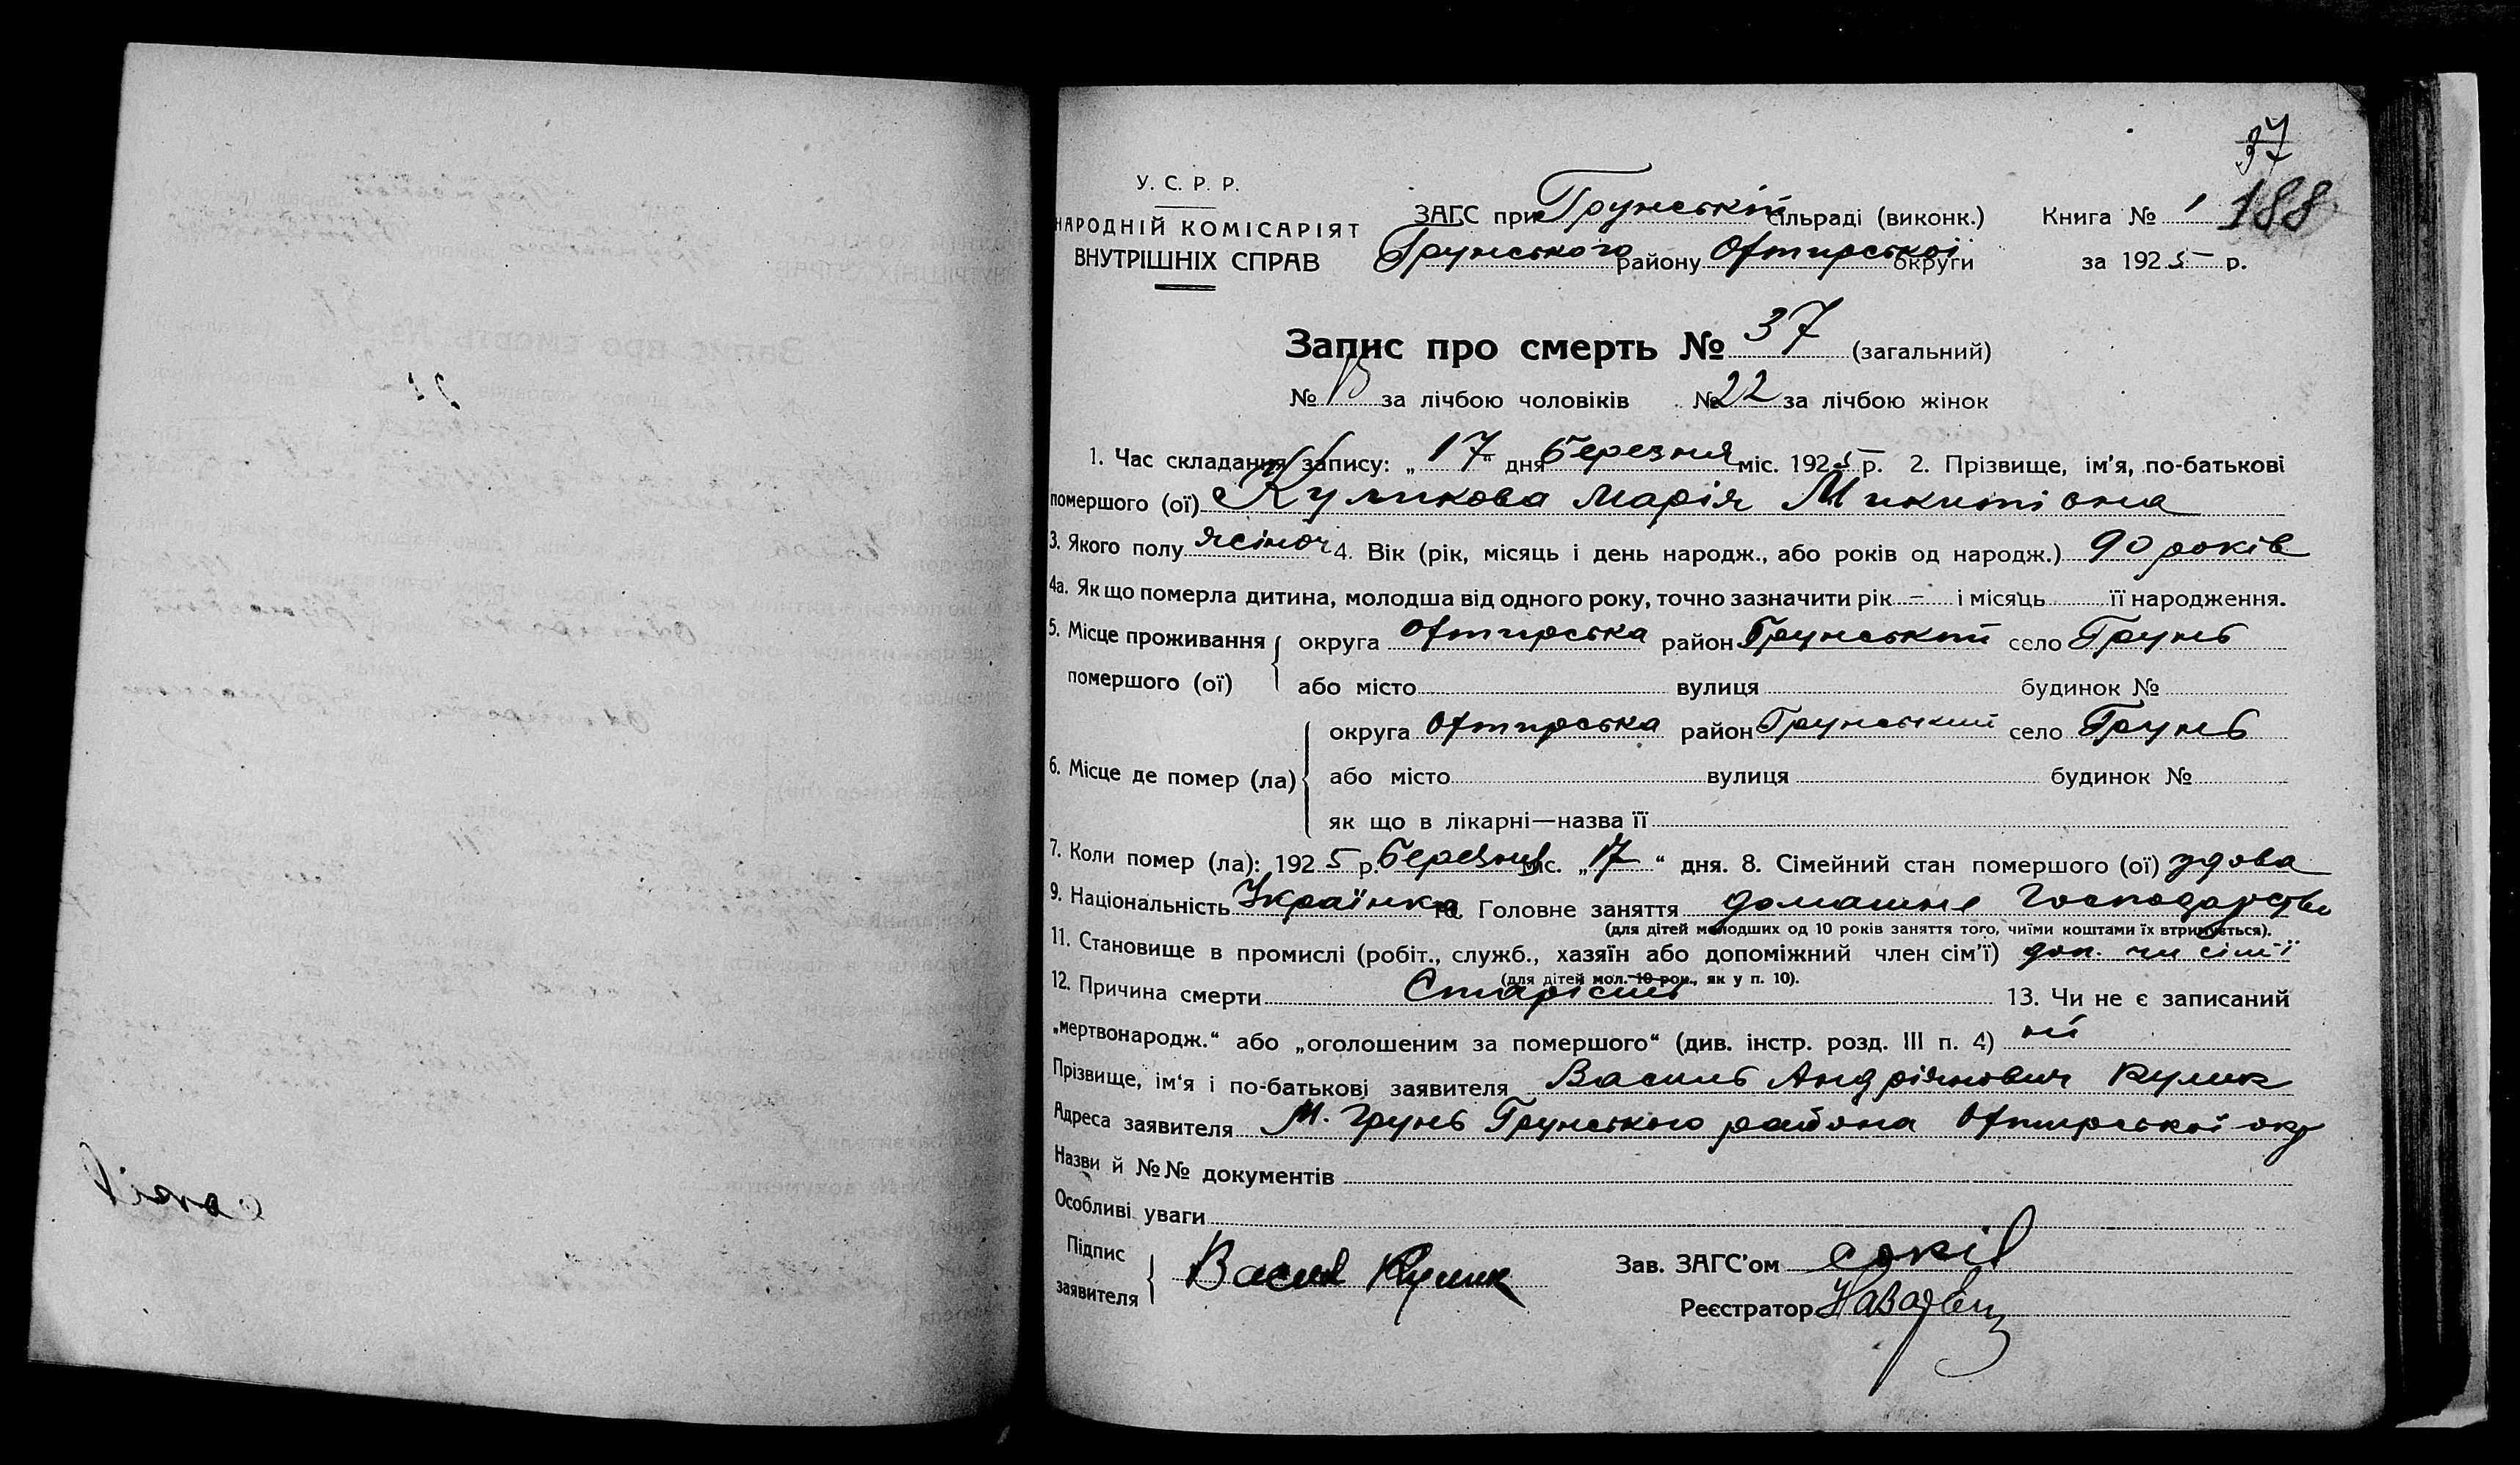 37
У. С. Р. Р.
ЗАГС при Грунській сільраді (виконк.) Книга № 1 188
НАРОДНІЙ КОМІСАРІЯТ
ВНУТРІШНІХ СПРАВ
Грунського району Охтирської округи за 1925 р.
Запис про смерть № 37 (загальний)
№ 15 за лічбою чоловіків № 22 за лічбою жінок
1. Час складання запису: „17“ дня березня міс. 1925 р. 2. Прізвище, ім'я, по-батькові
помершого (ої) Куликова Марія Микитівна
3. Якого полу жіноч 4. Вік (рік, місяць і день народж., або років од народж.) 90 років
4а. Як що померла дитина, молодша від одного року, точно зазначити рік - і місяць її народження.
5. Місце проживання округа Охтирська район Грунський село Грунь
помершого (ої) або місто вулиця будинок №
округа Охтирська район Грунський село Грунь
6. Місце де помер (ла) або місто вулиця будинок №
як що в лікарні—назва її
7. Коли помер (ла): 1925 р. березня міс. „17“ дня. 8. Сімейний стан помершого (ої) удова
9. Національність Українка 10. Головне заняття домашне господарство
(для дітей молодших од 10 років заняття того, чиїми коштами їх втримується).
11. Становище в промислі (робіт., служб., хазяїн або допоміжний член сім'ї) доп. чл сім'ї
(для дітей мол. 10 рок., як у п. 10).
12. Причина смерти Старість 13. Чи не є записаний
„мертвонародж.“ або „оголошеним за помершого“ (див. інстр. розд. III п. 4) ні
Прізвище, ім'я і по-батькові заявителя Василь Андріянович Кулик
Адреса заявителя М. Грунь Грунського района Охтирської окр
Назви й №№ документів
Особливі уваги
Підпис
заявителя Васил Кулик
Зав. ЗАГС'ом Сокіл
Реєстратор